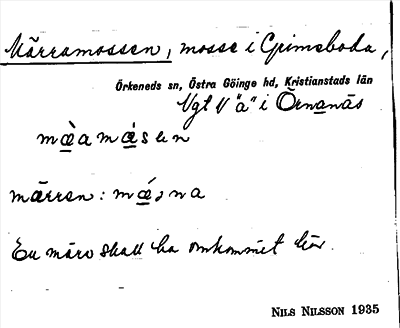 Märramossen, mosse i Grimsboda,
Örkeneds sn, Östra Göinge hd, Kristianstads län
Vgt V "a" i Örnanäs
mæ̀amásen
märren: mǽrna
En märr skall ha omkommit här.
NILS NILSSON 1935